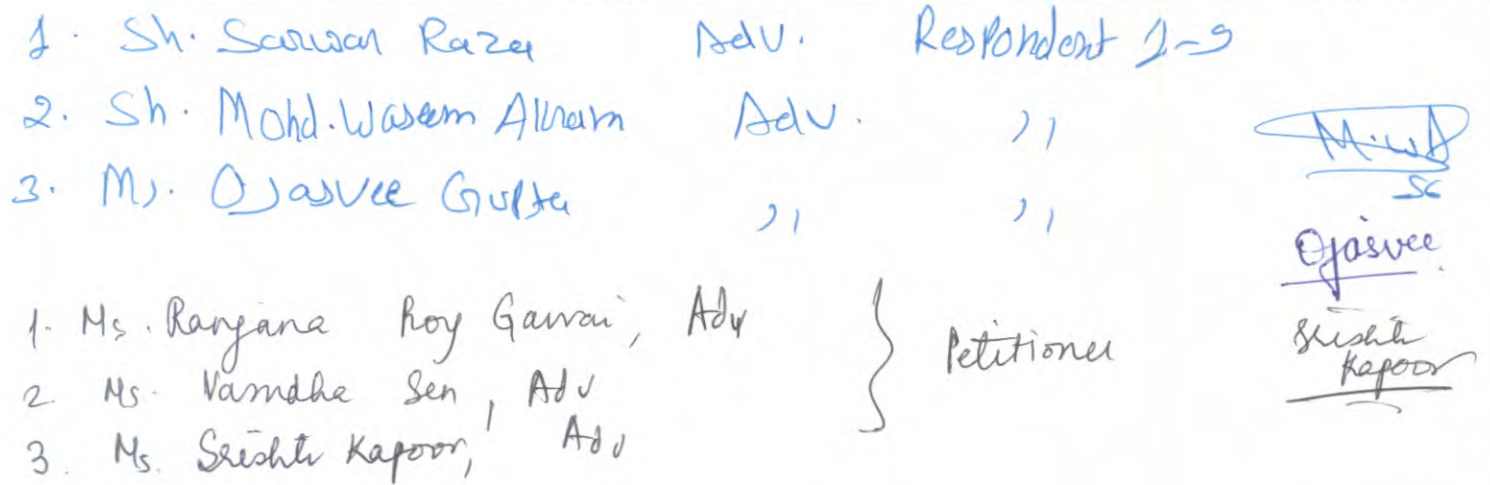 1. Sh. Sarwar Raza Adv. Respondent 1-9
2. Sh. Mohd. Waseem Akram Adv. ,,
3. Ms. Ojasvee Gupta ,, ,,
Ojasvee
1. Ms. Ranjana Roy Gawai, Adv
2. Ms. Vasudha Sen, Adv
3. Ms. Srishti Kapoor, Adv
Petitioner
Srishti
Kapoor